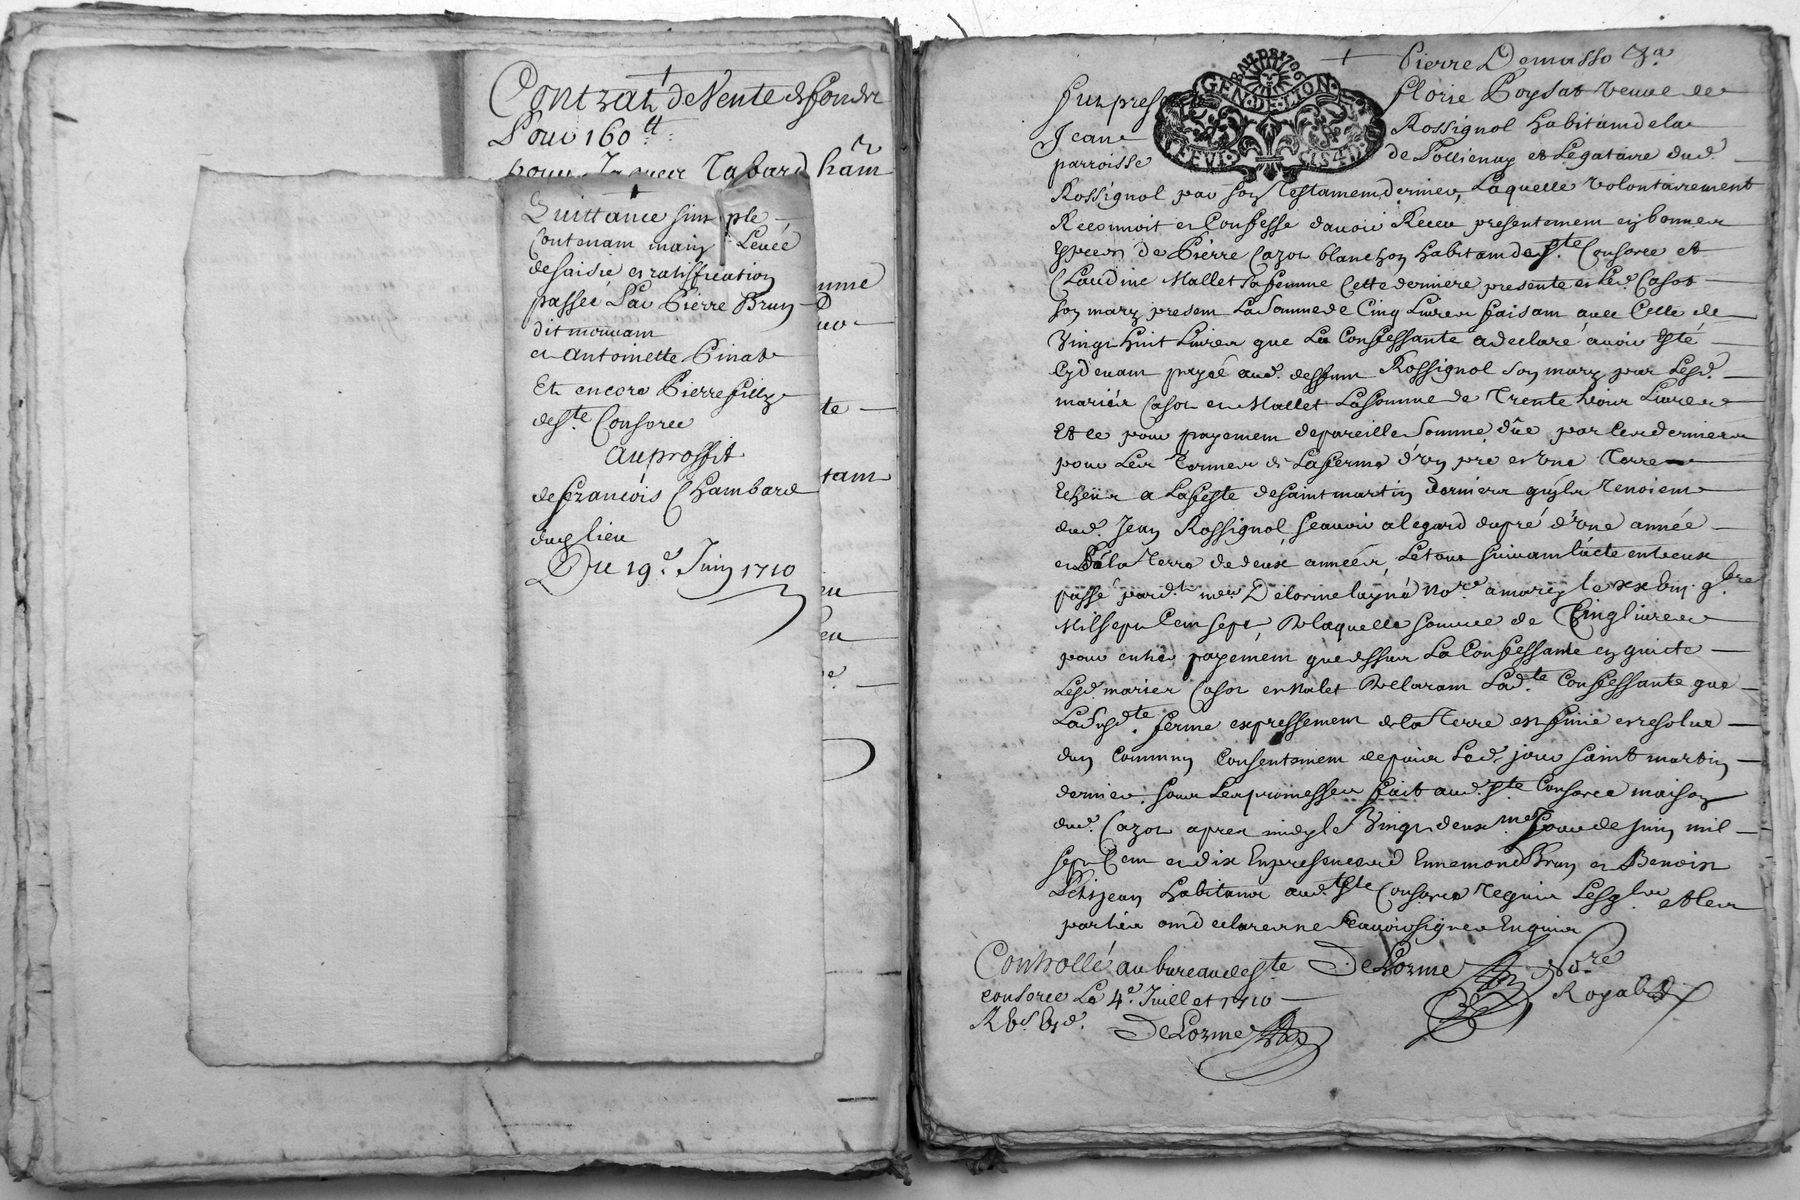 Contrat de Vente de fonder
Pour 160 tt.
pour Tabard ham
Quittance sim ple
Contenam main Levée
de saisie et ratiffication
passée Par Pierre Brun
dit mouvam
et Antoinette Pinat
Et encore Pierre filly
de Ste Consorce
Au proffit
de francois Chambard
dud lieu
Du 19e Juin 1710
umme
te
tam
Pierre Demasso
fut pres
florie Poysat veuve de
Jean
Rossignol habitam de la
parroisse
de Pollienay et Legataire dud.
Rossignol par son Testamem dernier, Laquelle volontairement
Reconnoit et Confesse davoir Receu presentemem en bonner
Especes de Pierre Cazot blanchon habitam de Ste. Consorce et
Claudine Mallet sa femme Cette derniere presente et Led. Casot
son mary presem La somme de Cinq Livres faisam avec Celle de
Vingt huit Livres que La Confessante a declaré avoir Esté
Cydevam payée aud. deffunt Rossignol son mary par Lesd.
mariér Casot et Mallet La somme de Trente trois Livres
Et ce pour payemem de pareille somme dûe par Ces derniers
pour Les Termes de La ferme d'un pré et d'une Terre
Echeus a La feste de saint martin derniere qu'ils Tenoiem
dud. Jean Rossignol, scavoir a legard du pré d'une année
et de la Terre de deux années, Le tout suivam l'acte entreux
passé pard.t me. Delorme layné No.re a marcy le xxviij 9.bre
Mil sept Cem sept, De laquelle somme de Cinq livres
pour entier payemem que dessus La Confessante en quitte
Lesd. marier Casot et Malet Declaram Lad.te Confessante que
La susd.te ferme expressemem de la Terre est finie et resolue
dun Commun Consentemem depuis Led. jour saint martin
dernier. sous Les promesses fait aud. Ste Consorce maison
dud. Cazot apres midy le Vingt deux.me Jour de Juin mil
sept Cem et dix En presence d Ennemond Brun et Benoist
Petitjean habitans aud. Ste Consorce Tesmoins Lesq.ls et les
parties om declaré ne scavoir signer Enquis
Controllé au bureau de Ste
DeLorme No.re
consorce Le 4e. Juillet 1710
Royal
DeLorme
GEN·DE·LION